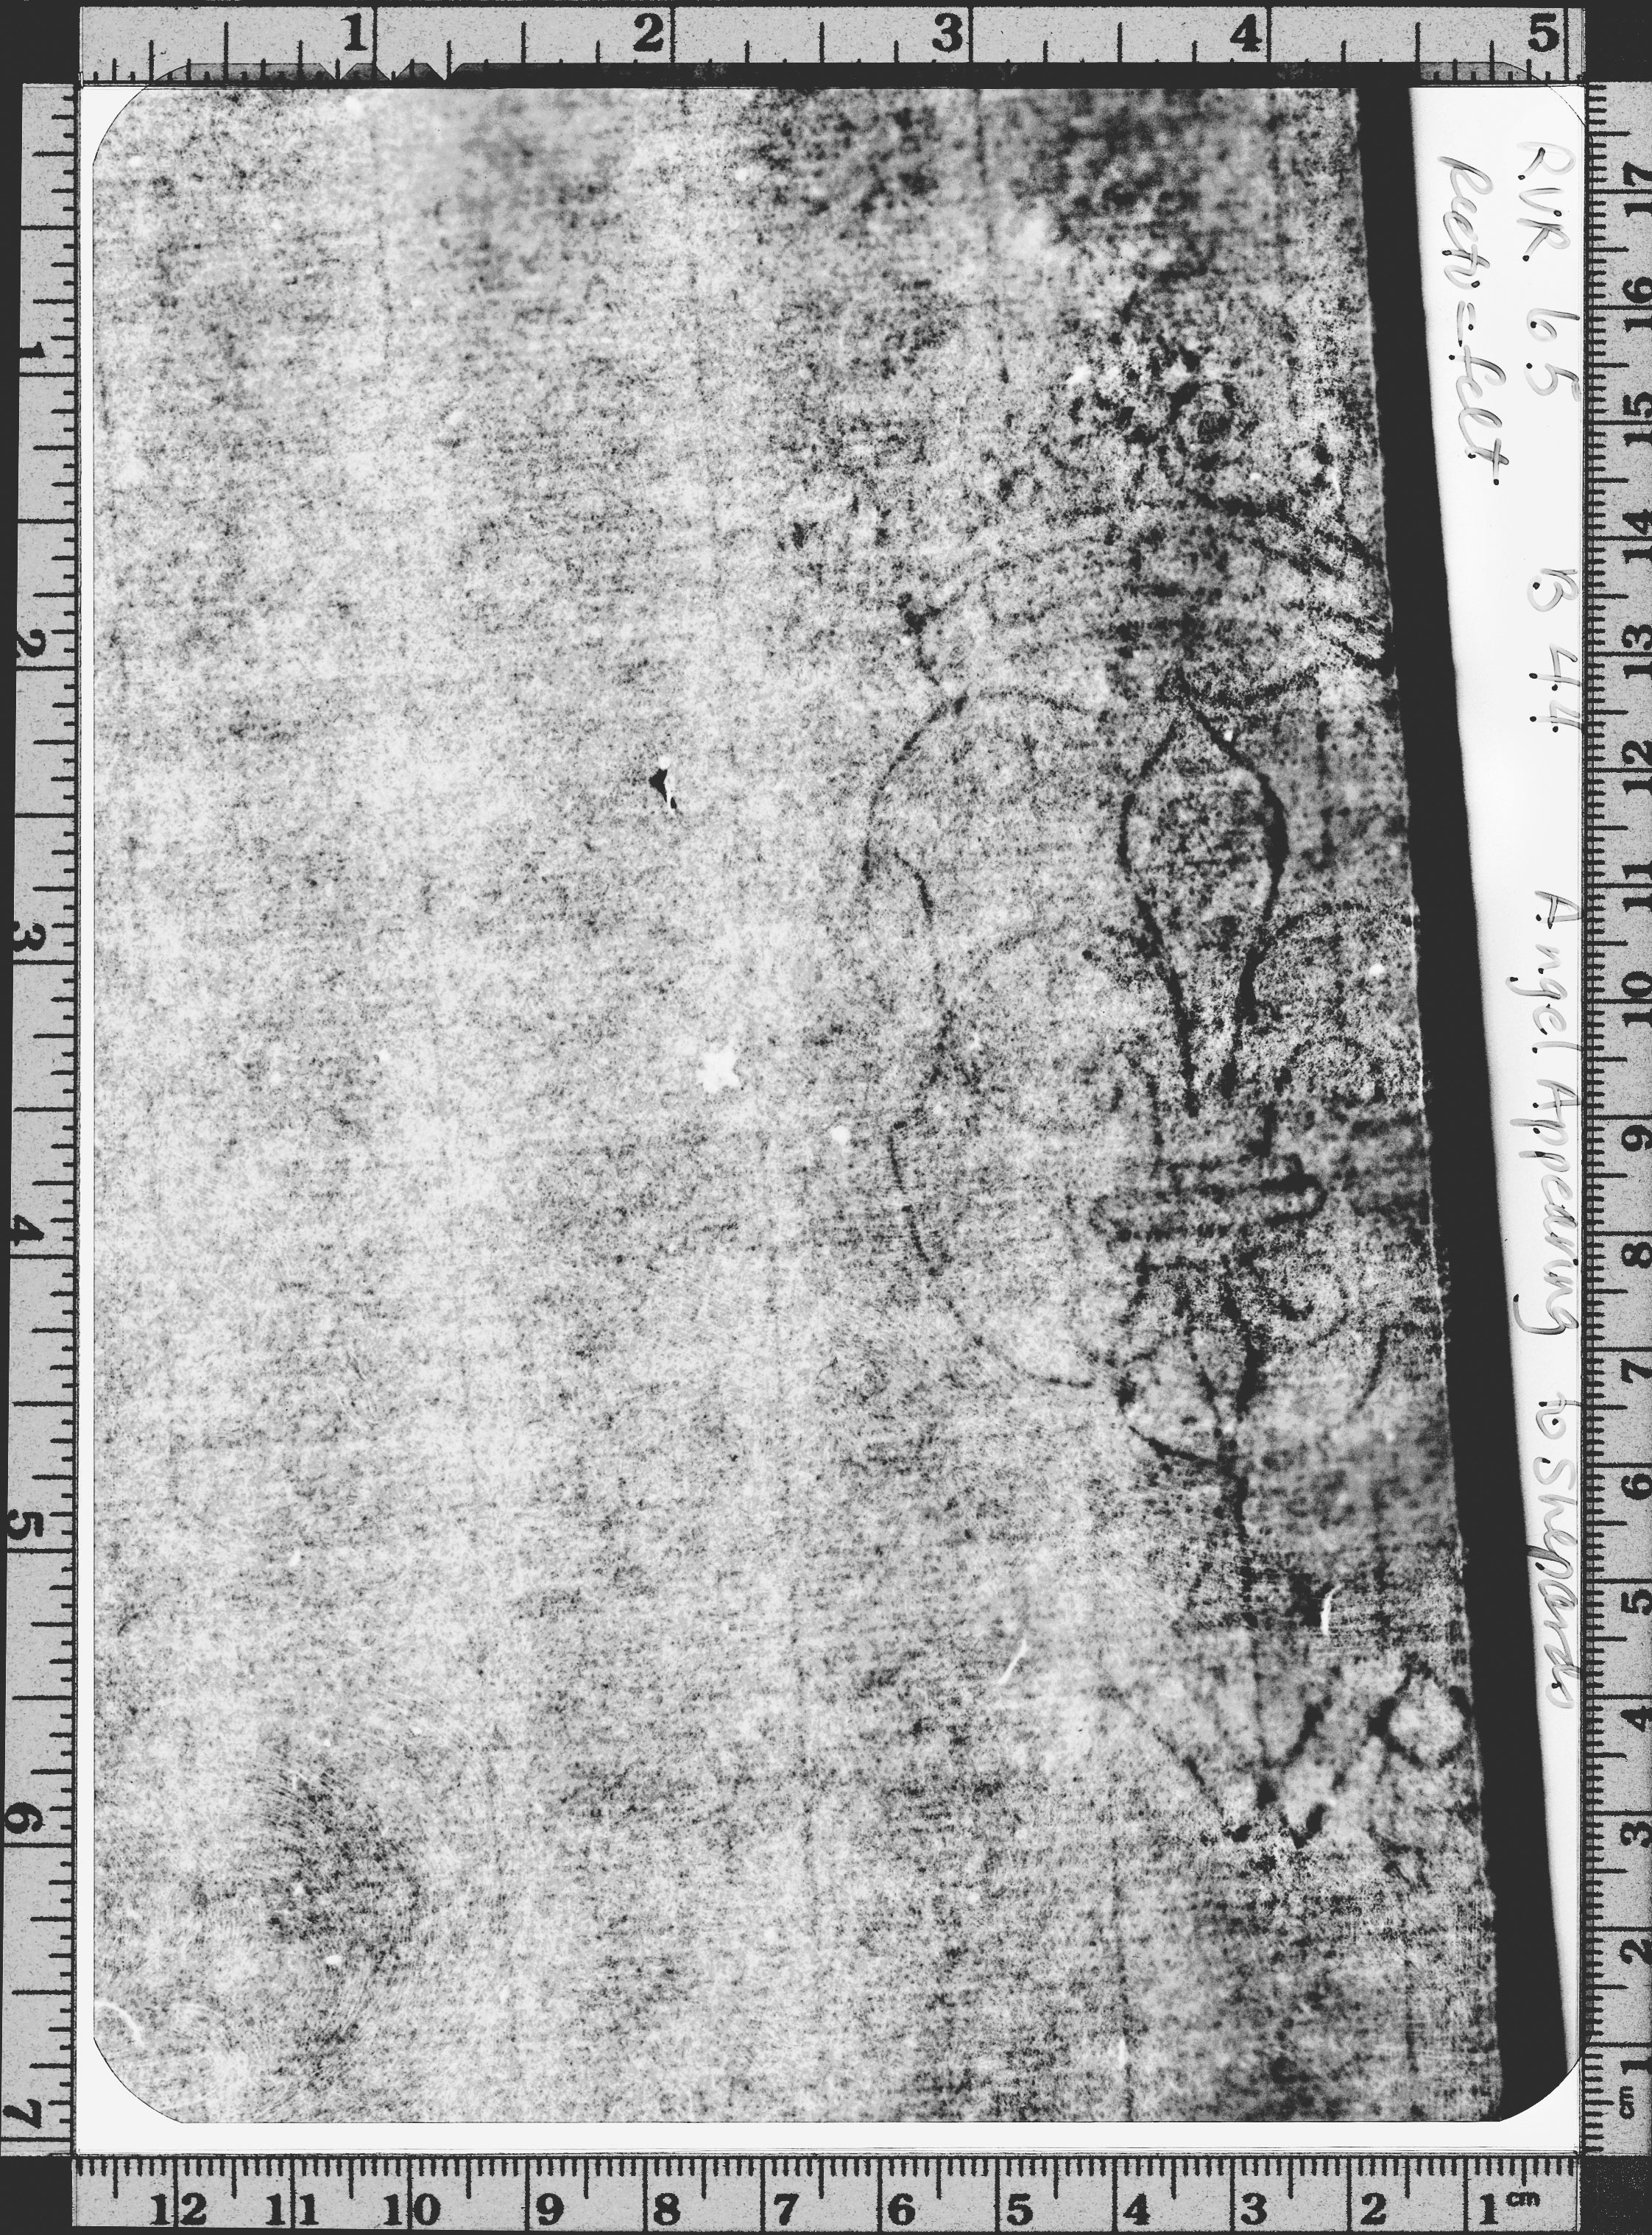 RVR 65 B 44 Angel Appearing to Shepards
Recto = felt
1 2 3 4 5
1 2 3 4 5 6 7
17 16 15 14 13 12 11 10 9 8 7 6 5 4 3 2 1 cm
12 11 10 9 8 7 6 5 4 3 2 1 cm